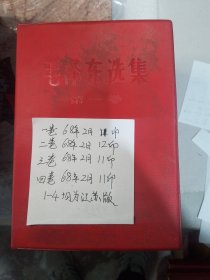 毛泽东选集
第一卷
一卷 68年2月 12印
二卷 68年2月 12印
三卷 68年2月 11印
四卷 68年2月 11印
1-4均为江苏版